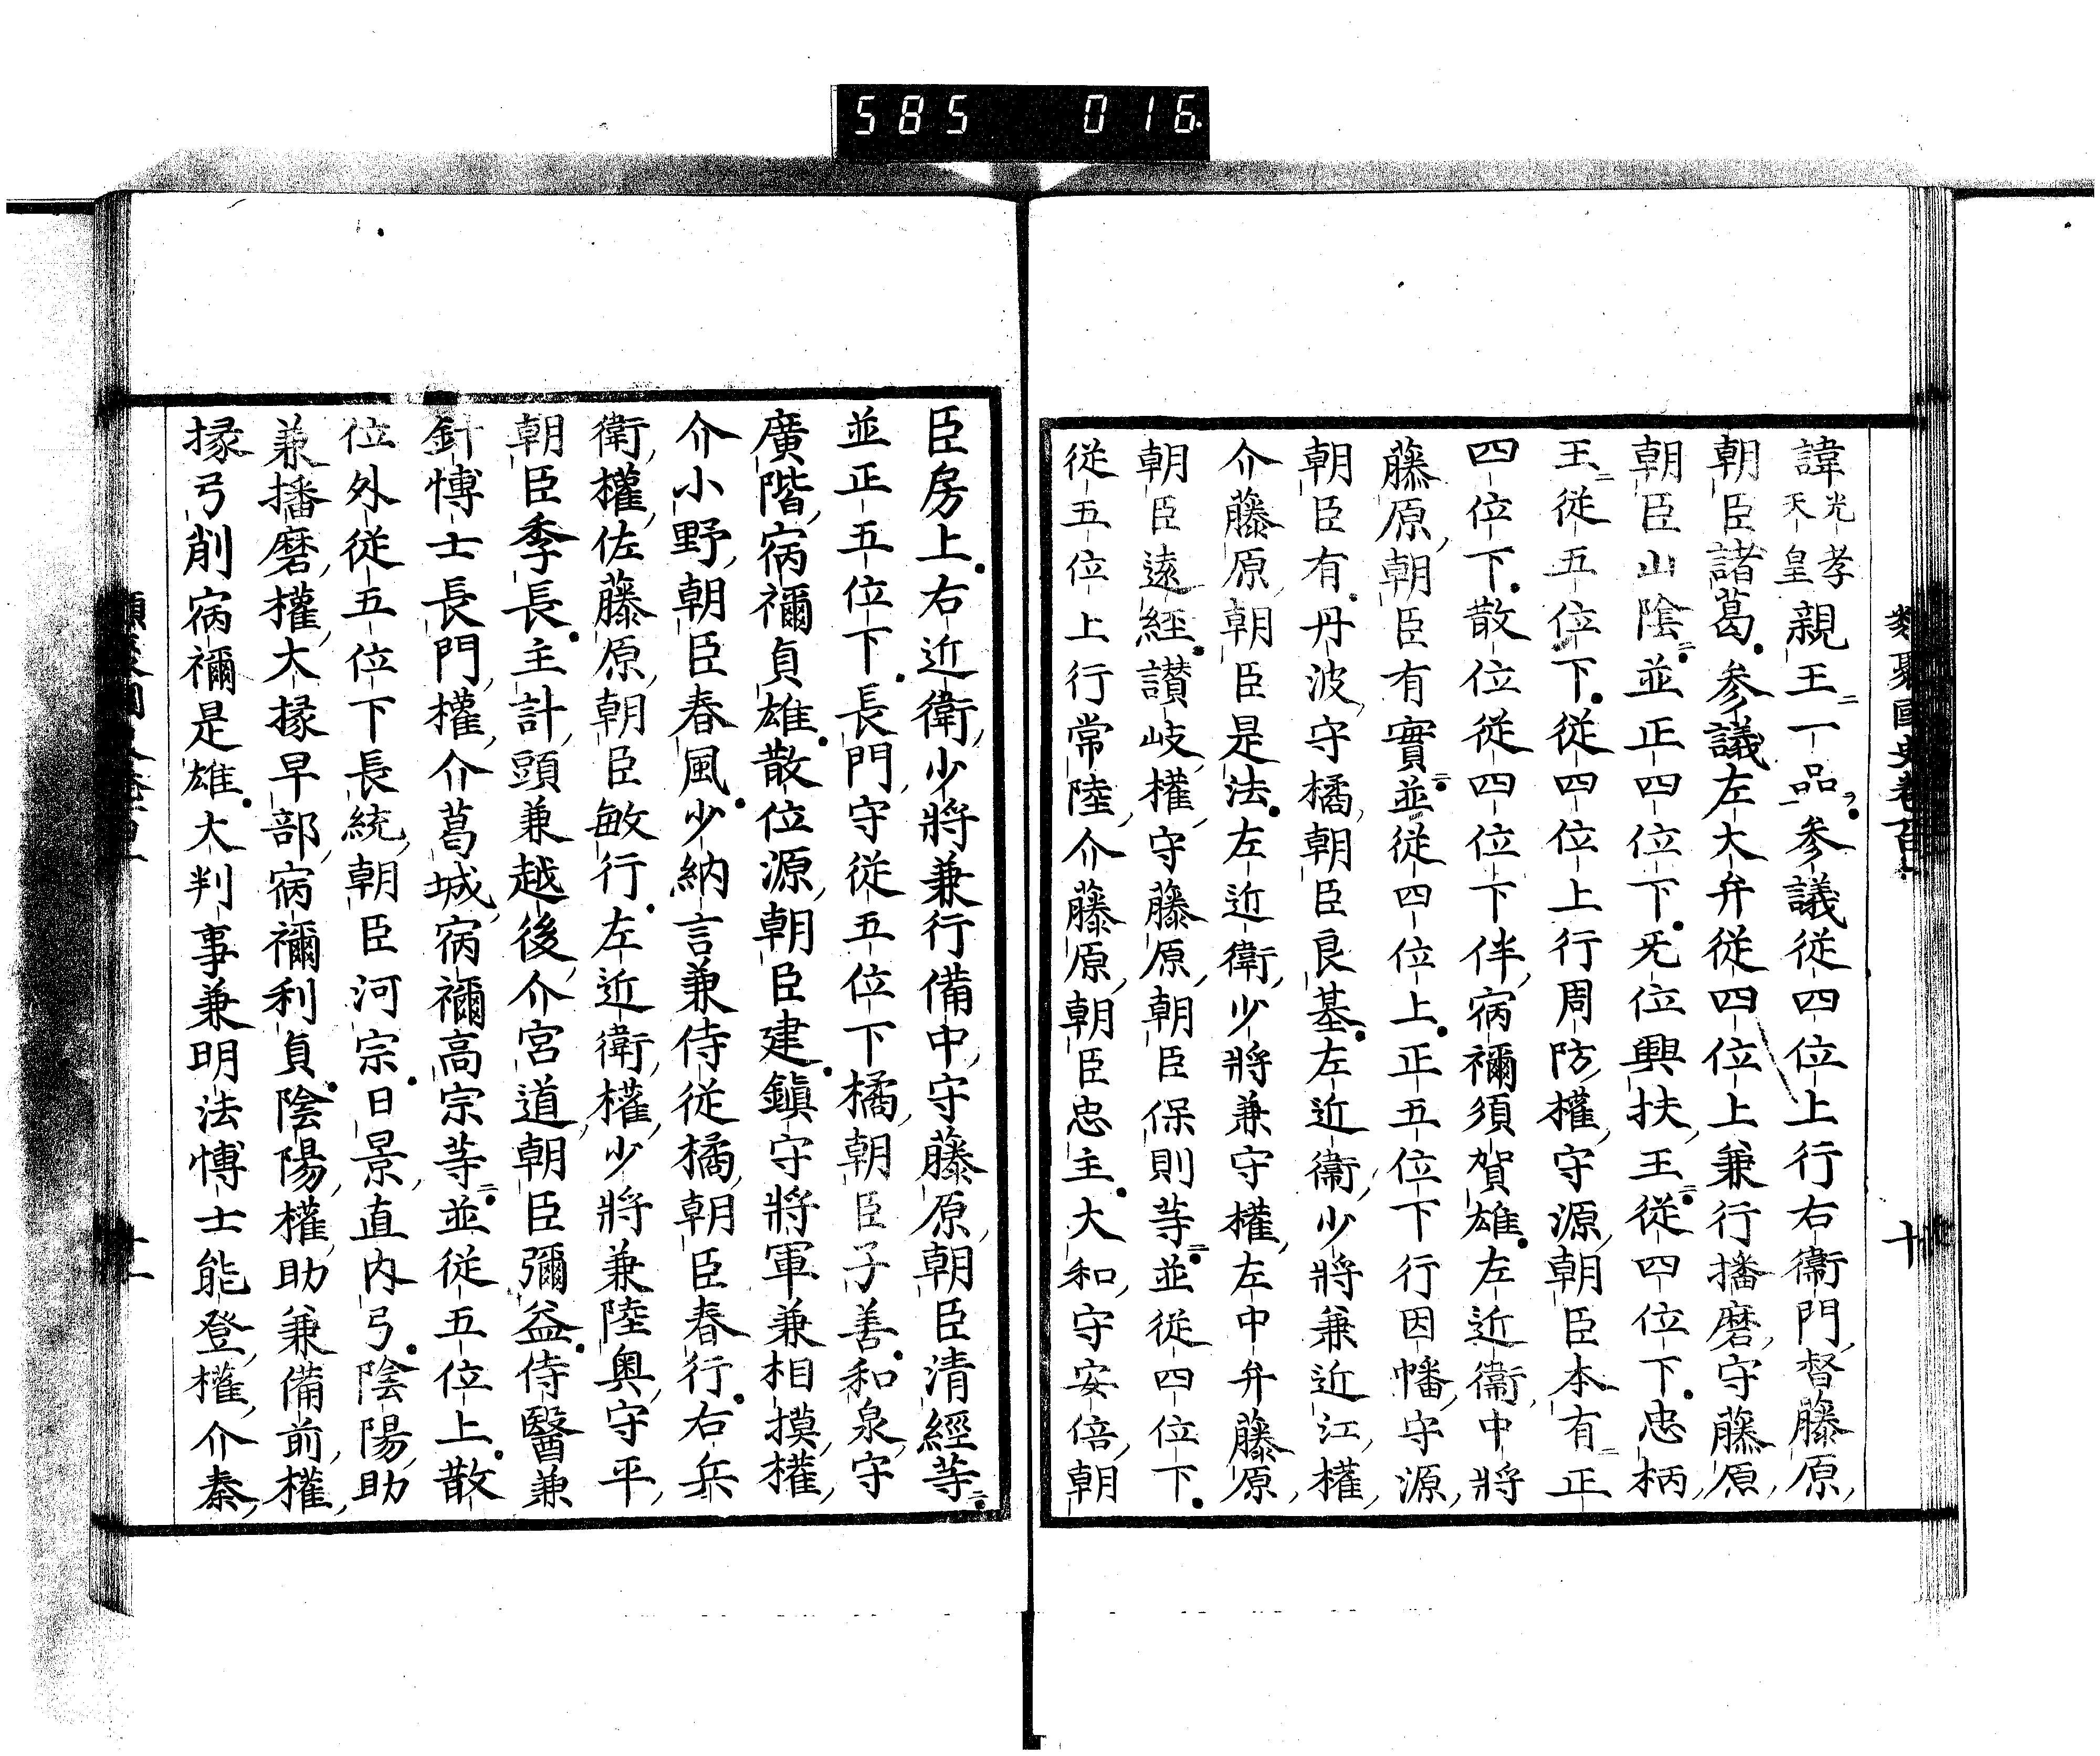 585 016
類聚國史卷百
十
諱光孝天皇親王一品參議從四位上行右衞門督藤原
朝臣諸葛參議左大弁從四位上兼行播磨守藤原
朝臣山陰並正四位下无位興扶王從四位下忠柄
王從五位下從四位上行周防權守源朝臣本有正
四位下散位從四位下伴宿禰須賀雄左近衞中將
藤原朝臣有實並從四位上正五位下行因幡守源
朝臣有丹波守橘朝臣良基左近衞少將兼近江權
介藤原朝臣是法左近衞少將兼守權左中弁藤原
朝臣遠經讃岐權守藤原朝臣保則等並從四位下
從五位上行常陸介藤原朝臣忠主大和守安倍朝
臣房上右近衞少將兼行備中守藤原朝臣清經等
並正五位下長門守從五位下橘朝臣子善和泉守
廣階宿禰貞雄散位源朝臣建鎭守將軍兼相摸權
介小野朝臣春風少納言兼侍從橘朝臣春行右兵
衞權佐藤原朝臣敏行左近衞權少將兼陸奧守平
朝臣季長主計頭兼越後介宮道朝臣彌益侍醫兼
針博士長門權介葛城宿禰高宗等並從五位上散
位外從五位下長統朝臣河宗日景直内弓陰陽助
兼播磨權大掾早部宿禰利貞陰陽權助兼備前權
掾弓削宿禰是雄大判事兼明法博士能登權介秦